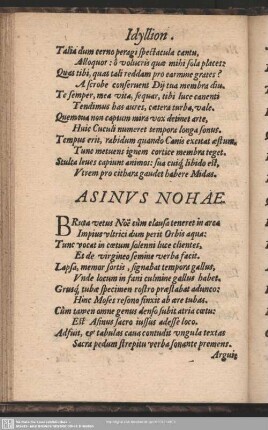 Idyllion.
Talia dum cerno peragi spectacula cantu,
Alloquor: ô volucris quæ mihi sola placet?
Quas tibi, quas tali reddam pro carmine grates?
A scrobe conservent Dij tua membra diu.
Te semper, mea vita, sequar, tibi luce canenti
Tendimus has aures, cætera turba, vale.
Quem tua non captum mira vox detinet arte,
Huic Cuculi numeret tempora longa sonus.
Tempus erit, rabidum quando Canis excitat æstum,
Tunc metuens ignem cortice membra teget.
Stulta leves capiunt animos: sua cuiq; libido est,
Vtrem pro cithara gaudet habere Midas.
ASINVS NOHAE.
BRuta vetus Noë cùm clausa teneret in arca
Impius ultrici dum perit Orbis aqua:
Tunc vocat in cœtum solenni luce clientes,
Et de virgineo semine verba facit.
Lapsa, memor sortis, signabat tempora gallus,
Vnde locum in fani culmine gallus habet.
Grusq; tubæ specimen rostro præstabat adunco:
Hinc Moses resono finxit ab ære tubas.
Cùm tamen omne genus denso subit atria cœtu:
Est Asinus sacro iussus adesse loco.
Adfuit, & tabulas cava contudit ungula textas
Sacra pedum strepitu verba sonante premens.
Arguit